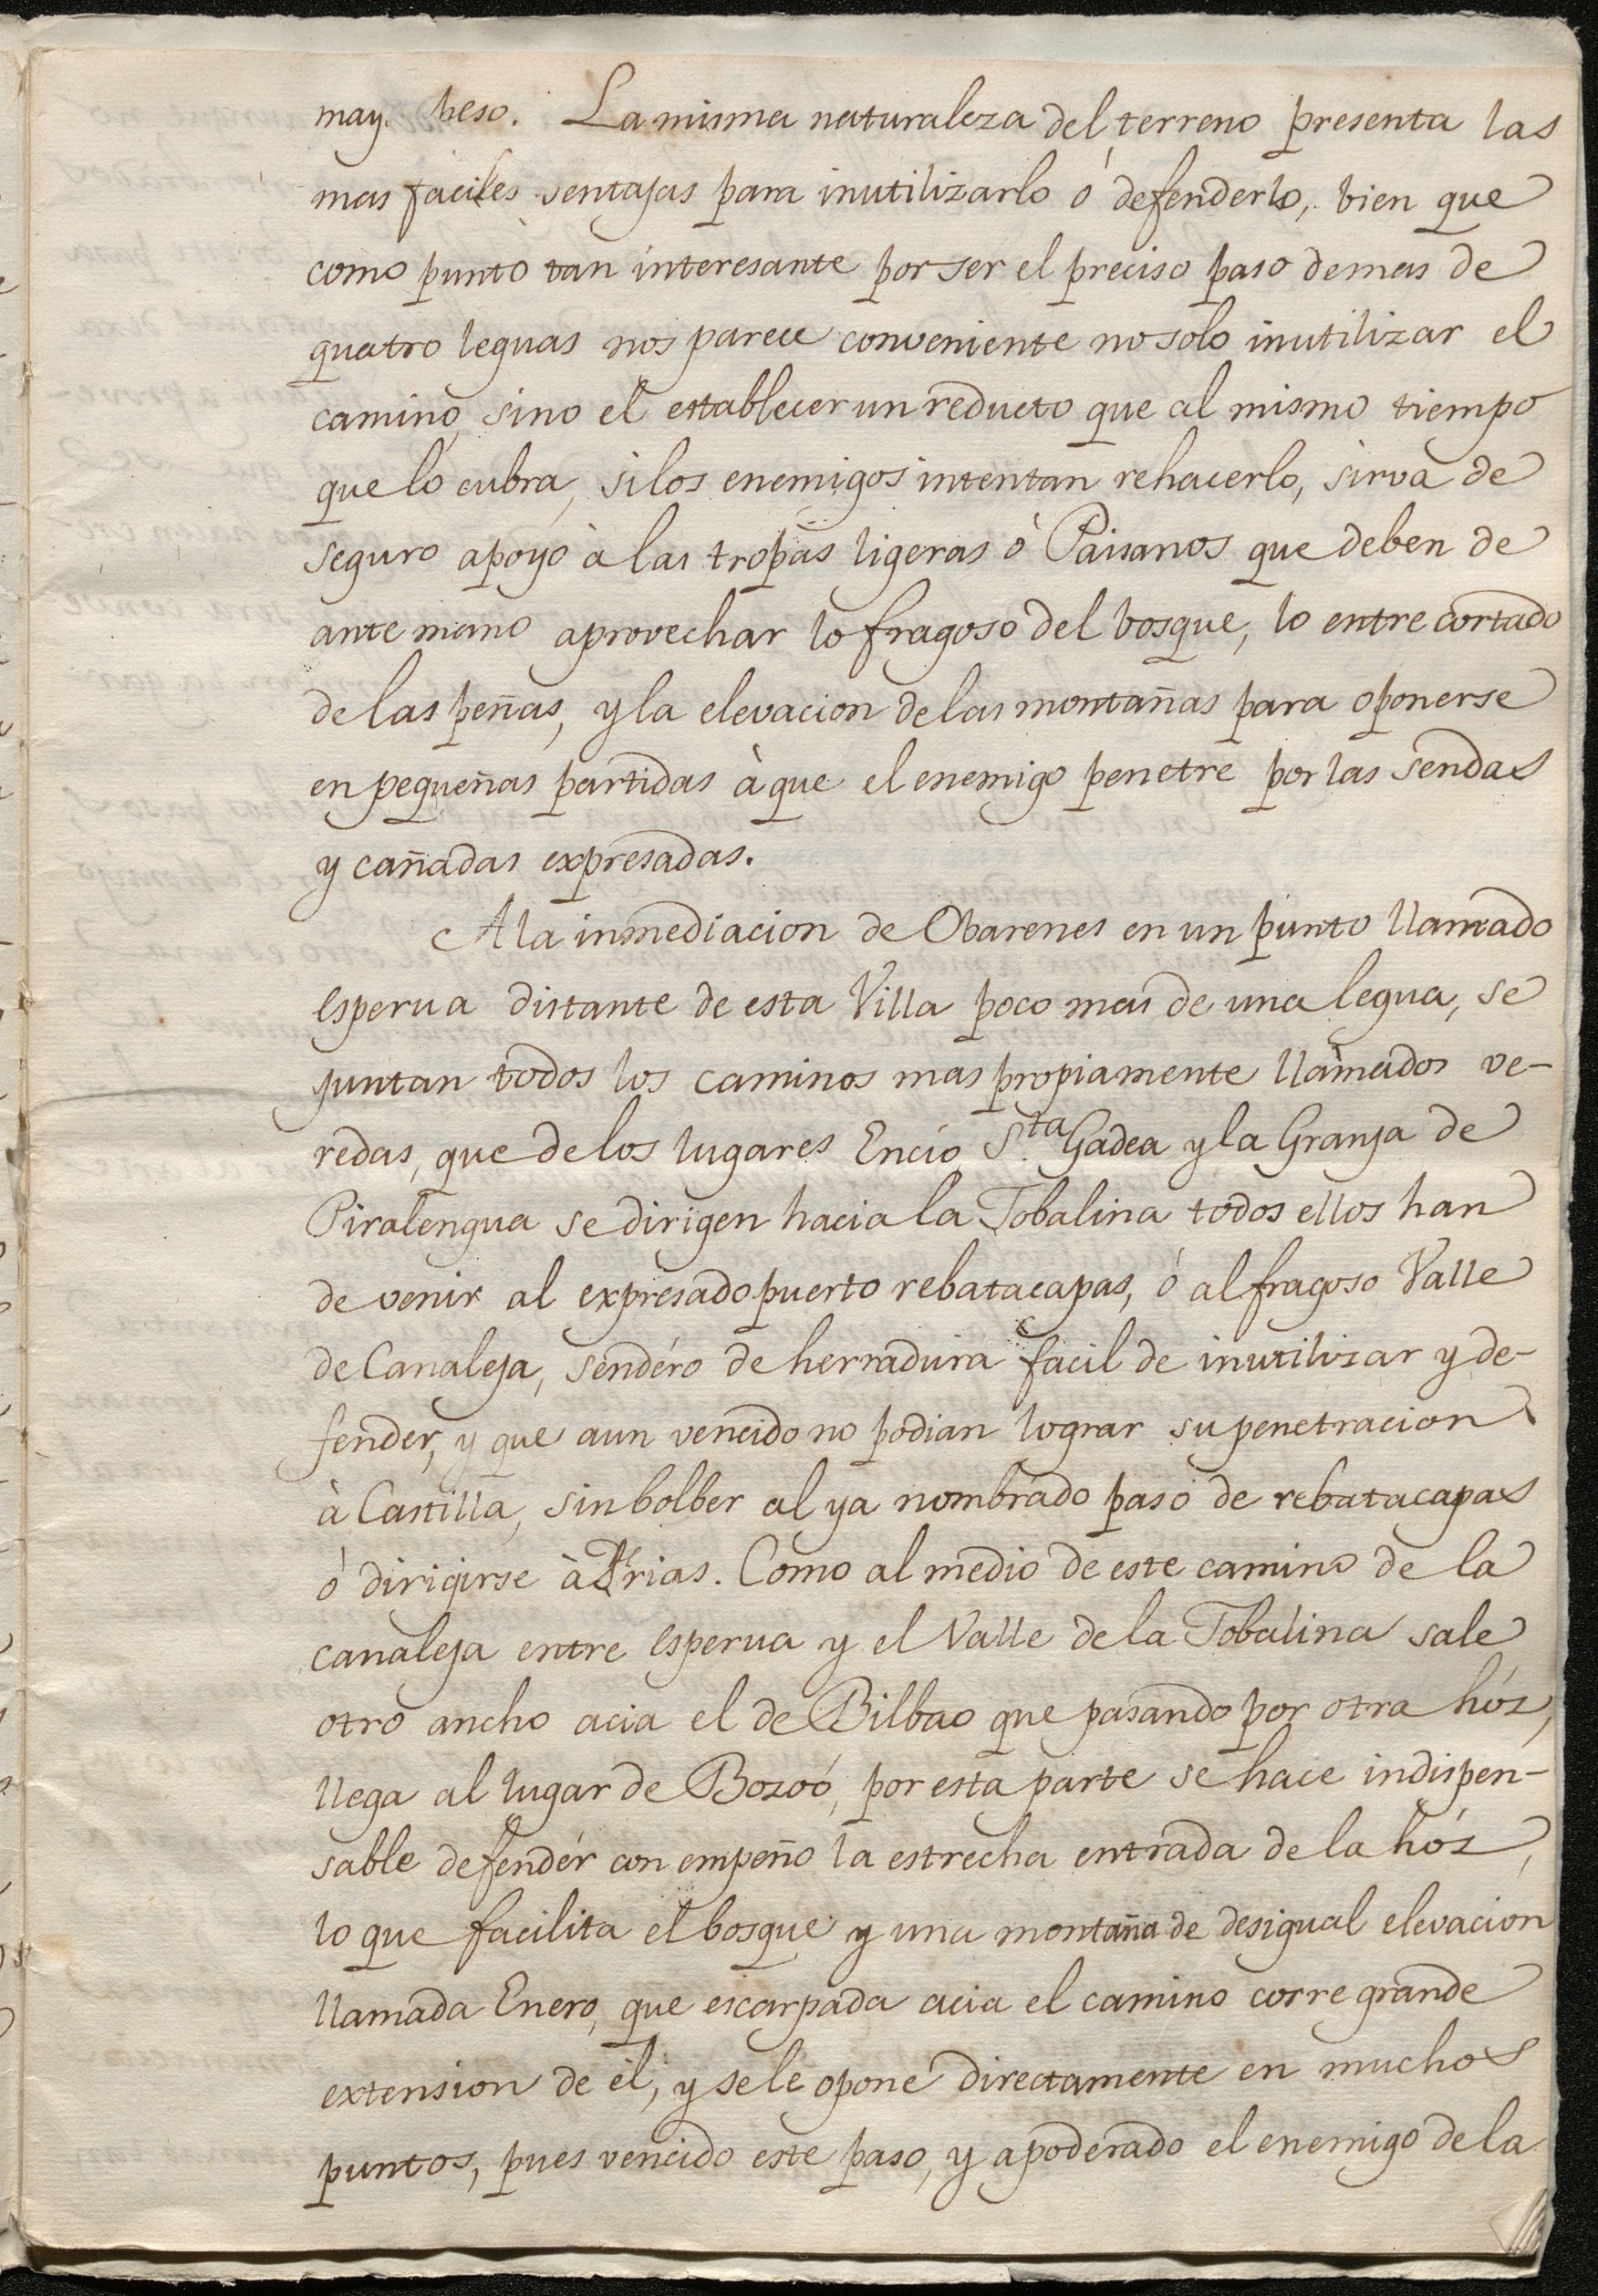 may. peso. La misma naturaleza del terreno presenta las
mas faciles sentajas para inutilizarlo ó defenderlo, bien que
como punto tan interesante por ser el preciso paso de mas de
quatro leguas nos parece conveniente no solo inutilizar el
camino, sino el establecer un reducto que al mismo tiempo
que lo cubra, si los enemigos intentan rehacerlo, sirva de
seguro apoyo à las tropas ligeras ò Paisanos que deben de
ante mano aprovechar lo fragoso del bosque, lo entre cortado
de las peñas, y la elevacion de las montañas para oponerse
en pequeñas partidas à que el enemigo penetre por las sendas
y cañadas expresadas.
A la inmediacion de Obarenes en un punto llamado
esperua distante de esta Villa poco mas de una legua, se
juntan todos los caminos mas propiamente llamados ve-
redas, que de los lugares Encio, S.ta Gadea y la Granja de
Piralengua se dirigen hacia la Tobalina todos ellos han
de venir al expresado puerto rebatacapas, ó al fragoso Valle
de Canaleja, sendéro de herradura facil de inutilizar y de-
fender, y que aun vencido no podian lograr su penetracion
à Castilla, sin bolber al ya nombrado paso de rebatacapas
ó dirigirse à Frias. Como al medio de este camino de la
canaleja entre esperua y el Valle de la Tobalina sale
otro ancho acia el de Bilbao que pasando por otra hóz,
llega al lugar de Bozoó, por esta parte se hace indispen-
sable defendér con empeño la estrecha entrada de la hóz,
lo que facilita el bosque y una montaña de desigual elevacion
llamada Enero, que escarpada acia el camino corre grande
extension de él, y se le opone directamente en muchos
puntos, pues vencido este paso, y apoderado el enemigo de la